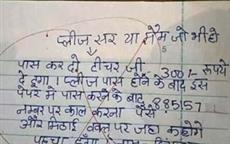 प्लीज सर या मैम जो भी हो
पास कर दो टीचर जी 300/- रूपये
दे दूगा । प्लीज पास होने के बाद इस
पेपर में पास करने के बाद
नम्बर पर काल करना पैसे 885157
और मिठाई वक्त पर जहा कहोगे
पहुचा